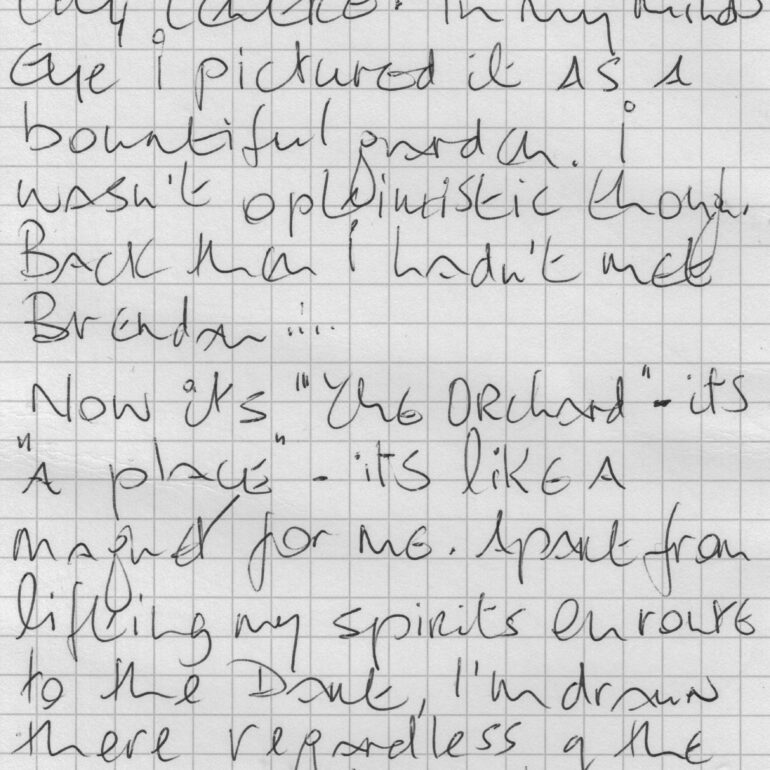 In my minds
Eye i pictured it as a
bountiful garden. i
wasn't optimistic though.
Back then i hadn't met
Brendan .....
Now its "The Orchard" - its
"A place" - its like A
magnet for me. Apart from
lifting my spirits en route
to the Dart, I'm drawn
there regardless of the